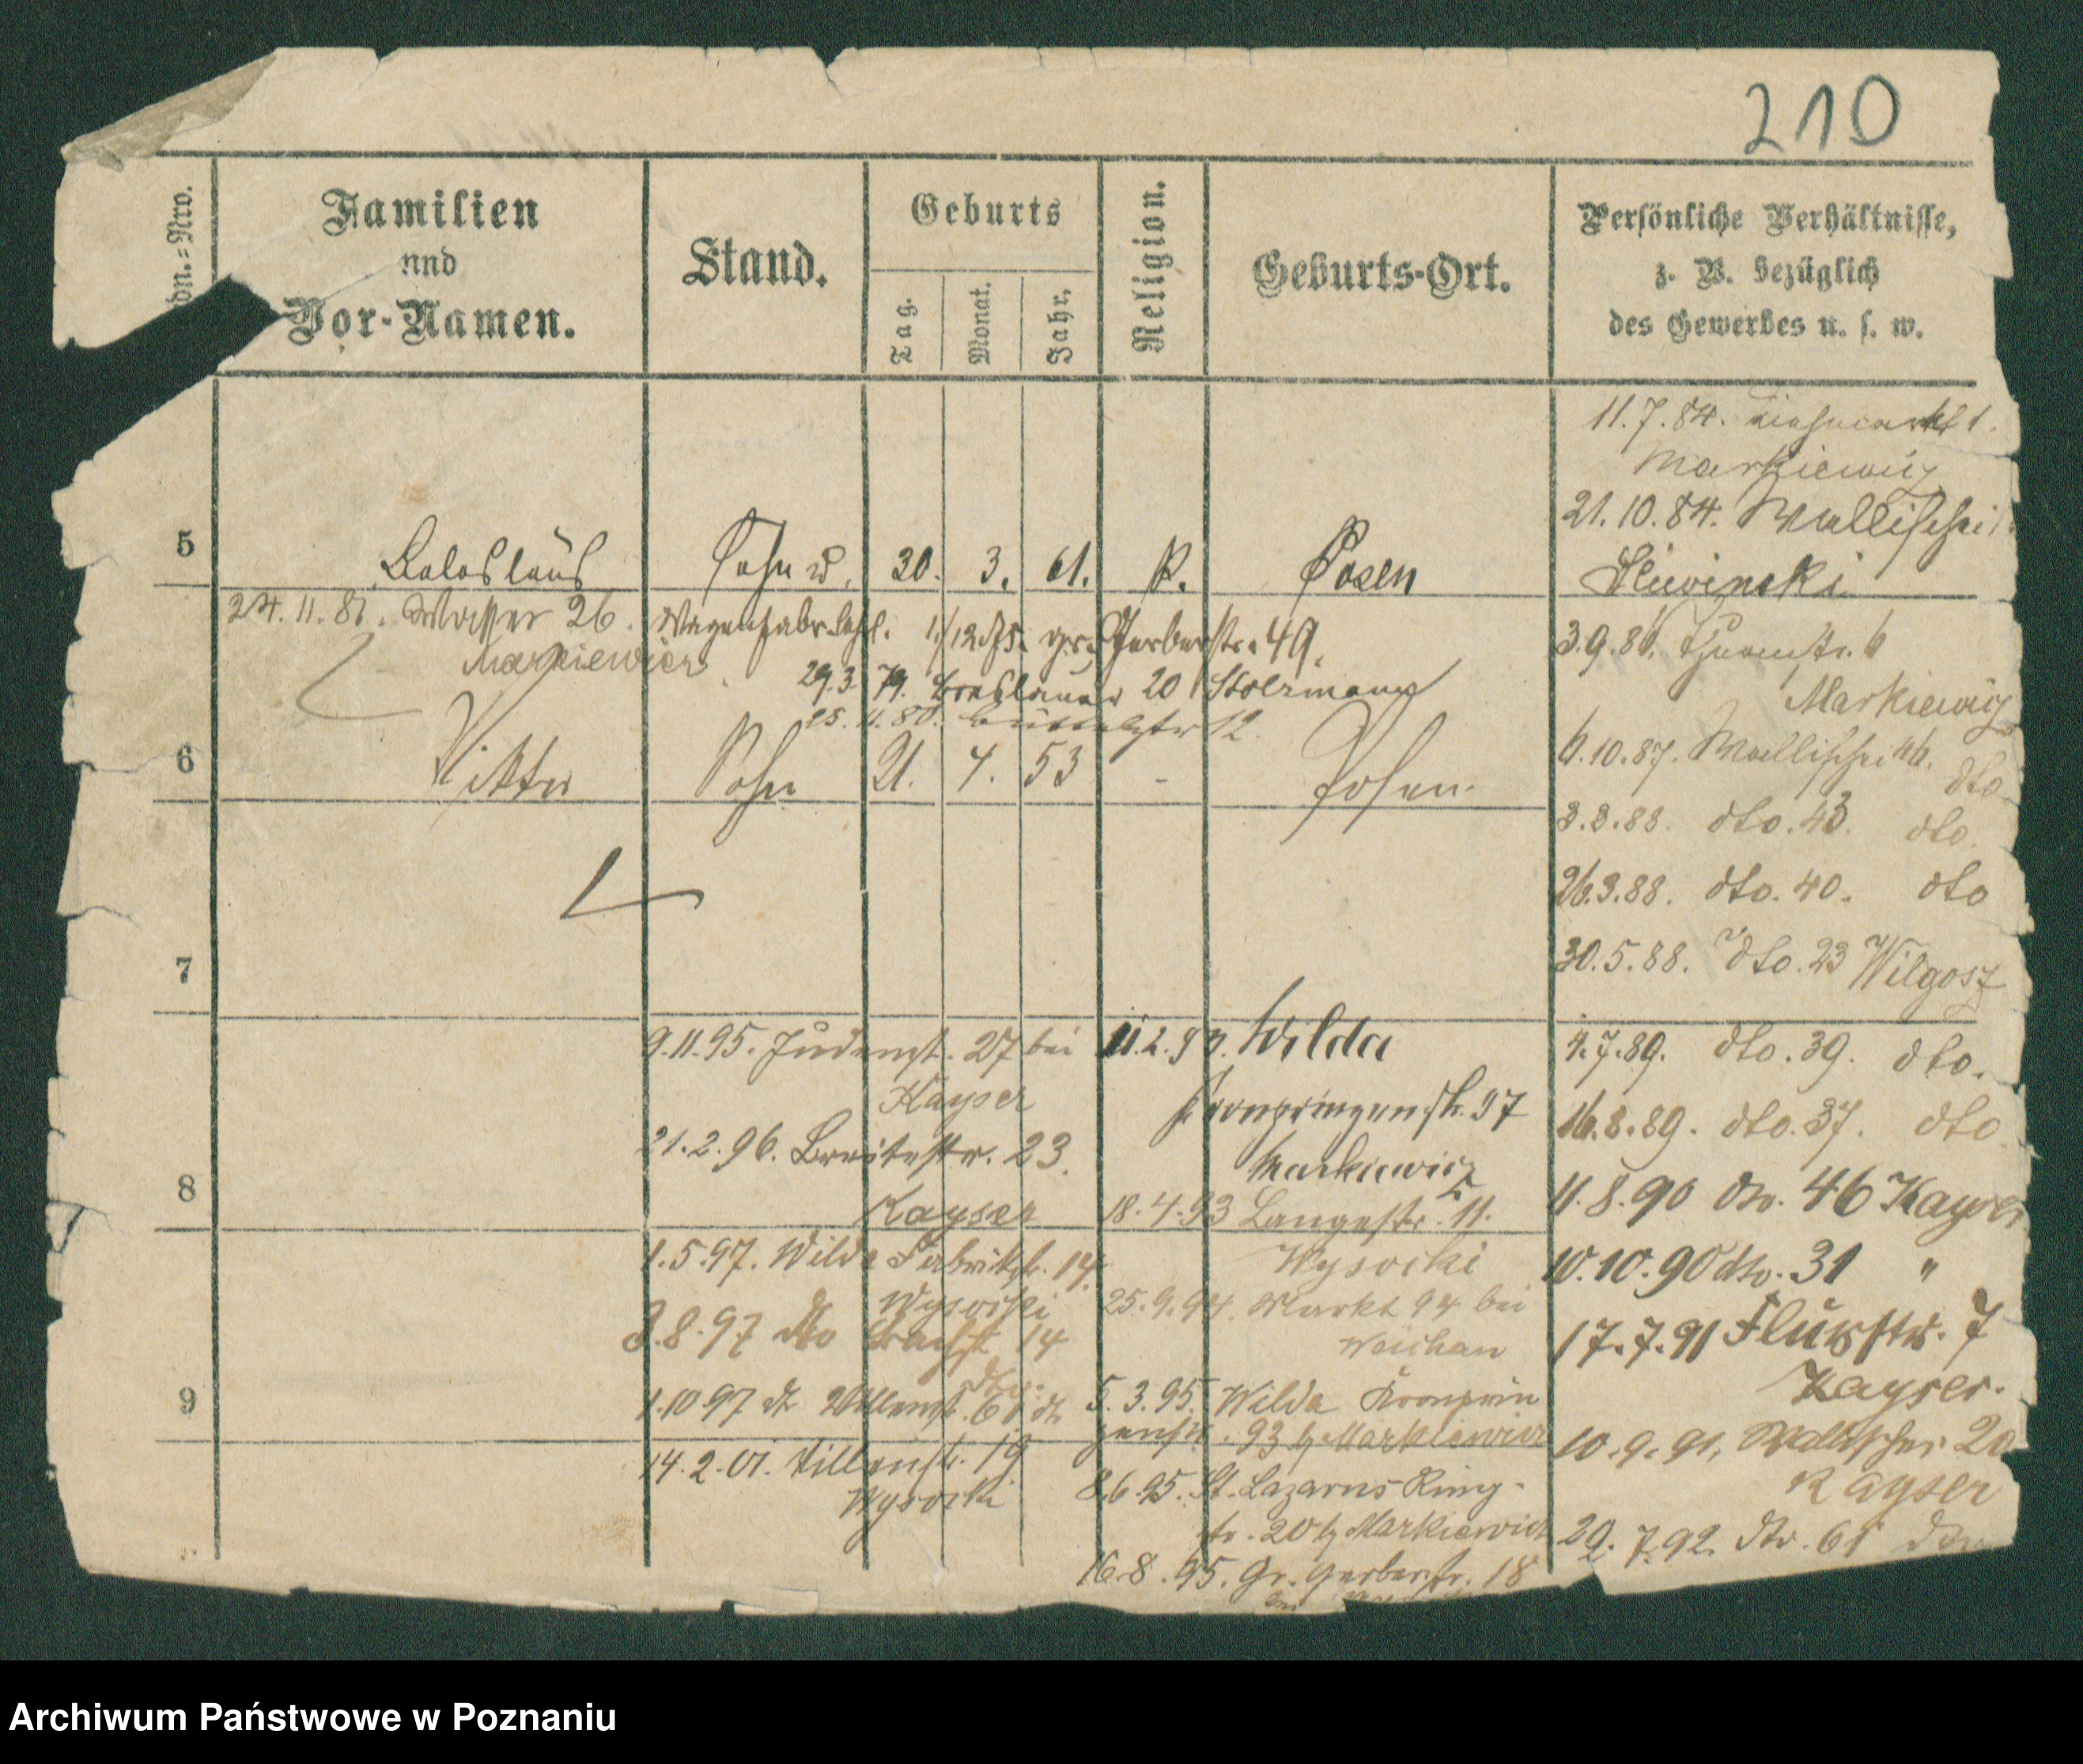 210
dn.-Nro.
Familien
und
Vor-Namen.
Stand.
Geburts
Tag.
Monat.
Jahr.
Religion.
Geburts-Ort.
Persönliche Verhältnisse,
z. B. bezüglich
des Gewerbes u. s. w.
5
Boleslaus
Sohn
30. 3. 61.
K.
Posen
24.11.81. Wasser 26.
Markiewicz
1/12.75. gr. Gerberstr. 49.
29.3.79. Breslauer 20 Stolzmann
25.11.80.
12.
6
Victor
Sohn
21. 4. 53
-
Posen.
7
8
9
9.11.95. Judenst. 27 bei
Kayser
21.2.96. Breitestr. 23.
Kayser
1.5.97. Wilda Fabrikstr. 14.
Wysocki
3.8.97 dto 14
dto.
1.10 97 dt 61 dt
14.2.01. 19
Wysocki
11.2.93. Wilda
Kronprinzenstr. 97
Markiewicz
18.4.93 Langestr. 11.
Wysocki
25.9.94. Markt 94 bei
Weichan
5.3.95. Wilda Kronprin
zenstr. 93 b/ Markiewicz
8.6.95. St. Lazarus Ring-
str. 20 b/ Markiewicz
16.8.95. Gr. Gerberstr. 18
bei
11.7.84. 1.
Markiewicz
21.10.84. Wallischei
Sliwinski
3.9.86. Thurmstr. 6
Markiewicz
6.10.87. Wallischei 46.
dto
3.3.88. dto. 43. dto.
26.3.88. dto. 40. dto
30.5.88. dto. 23 Wilgosz
4.7.89. dto. 39. dto.
16.8.89. dto. 37. dto.
11.8.90 dto. 46 Kayser
10.10.90 dto. 31 "
17.7.91 Flurstr. 7
Kayser.
10.9.91. Wallischei 20
Kayser
29.7.92. dto. 61 dto
Archiwum Państwowe w Poznaniu